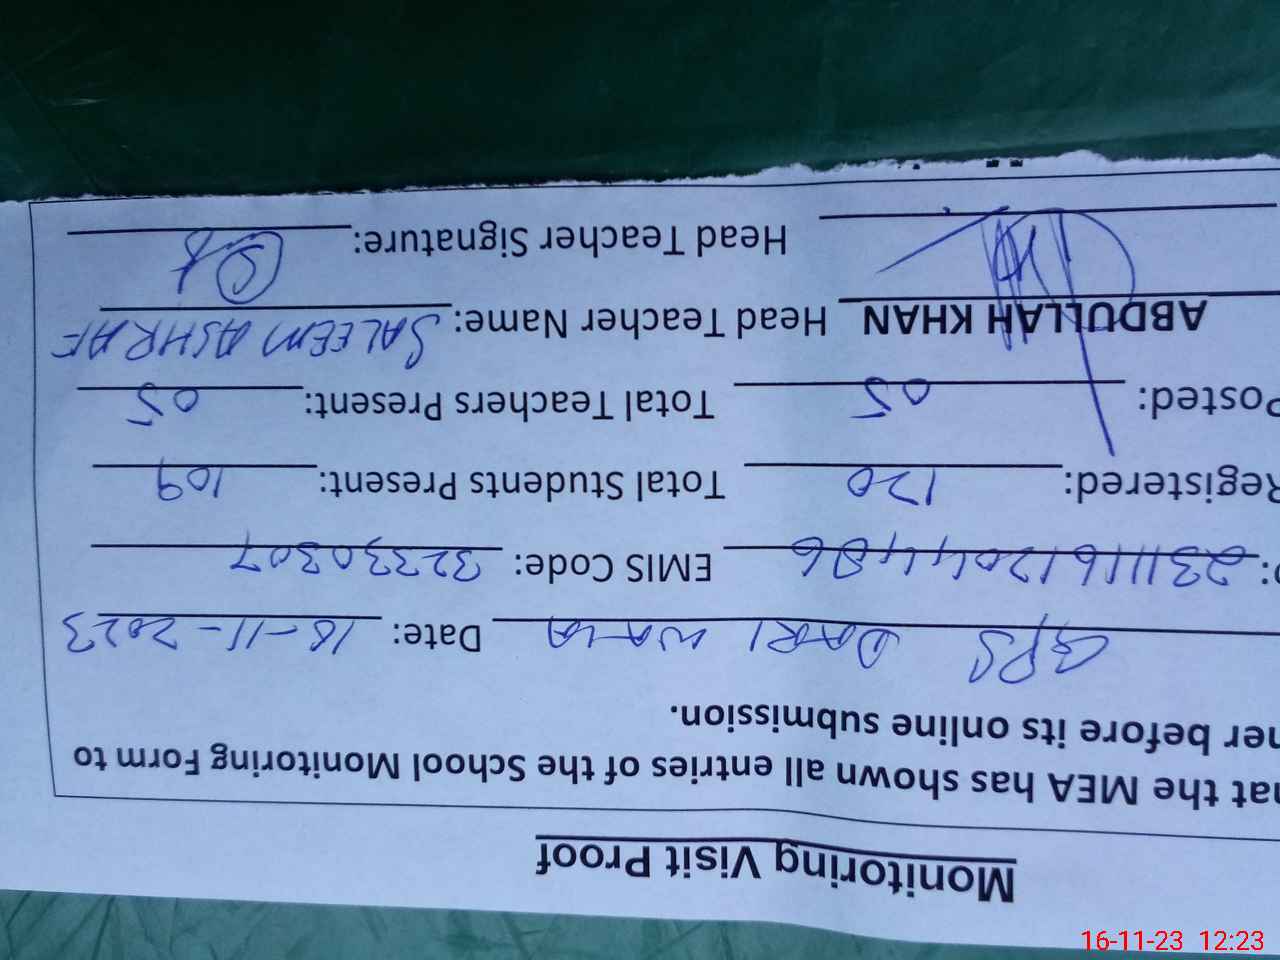 Monitoring Visit Proof
hat the MEA has shown all entries of the School Monitoring Form to
her before its online submission.
GPS DARI WALA Date: 16-11-2023
: 2311161204486 EMIS Code: 32330307
Registered: 120 Total Students Present: 109
Posted: 05 Total Teachers Present: 05
ABDULLAH KHAN Head Teacher Name: SALEEM ASHRAF
Head Teacher Signature:
16-11-23 12:23